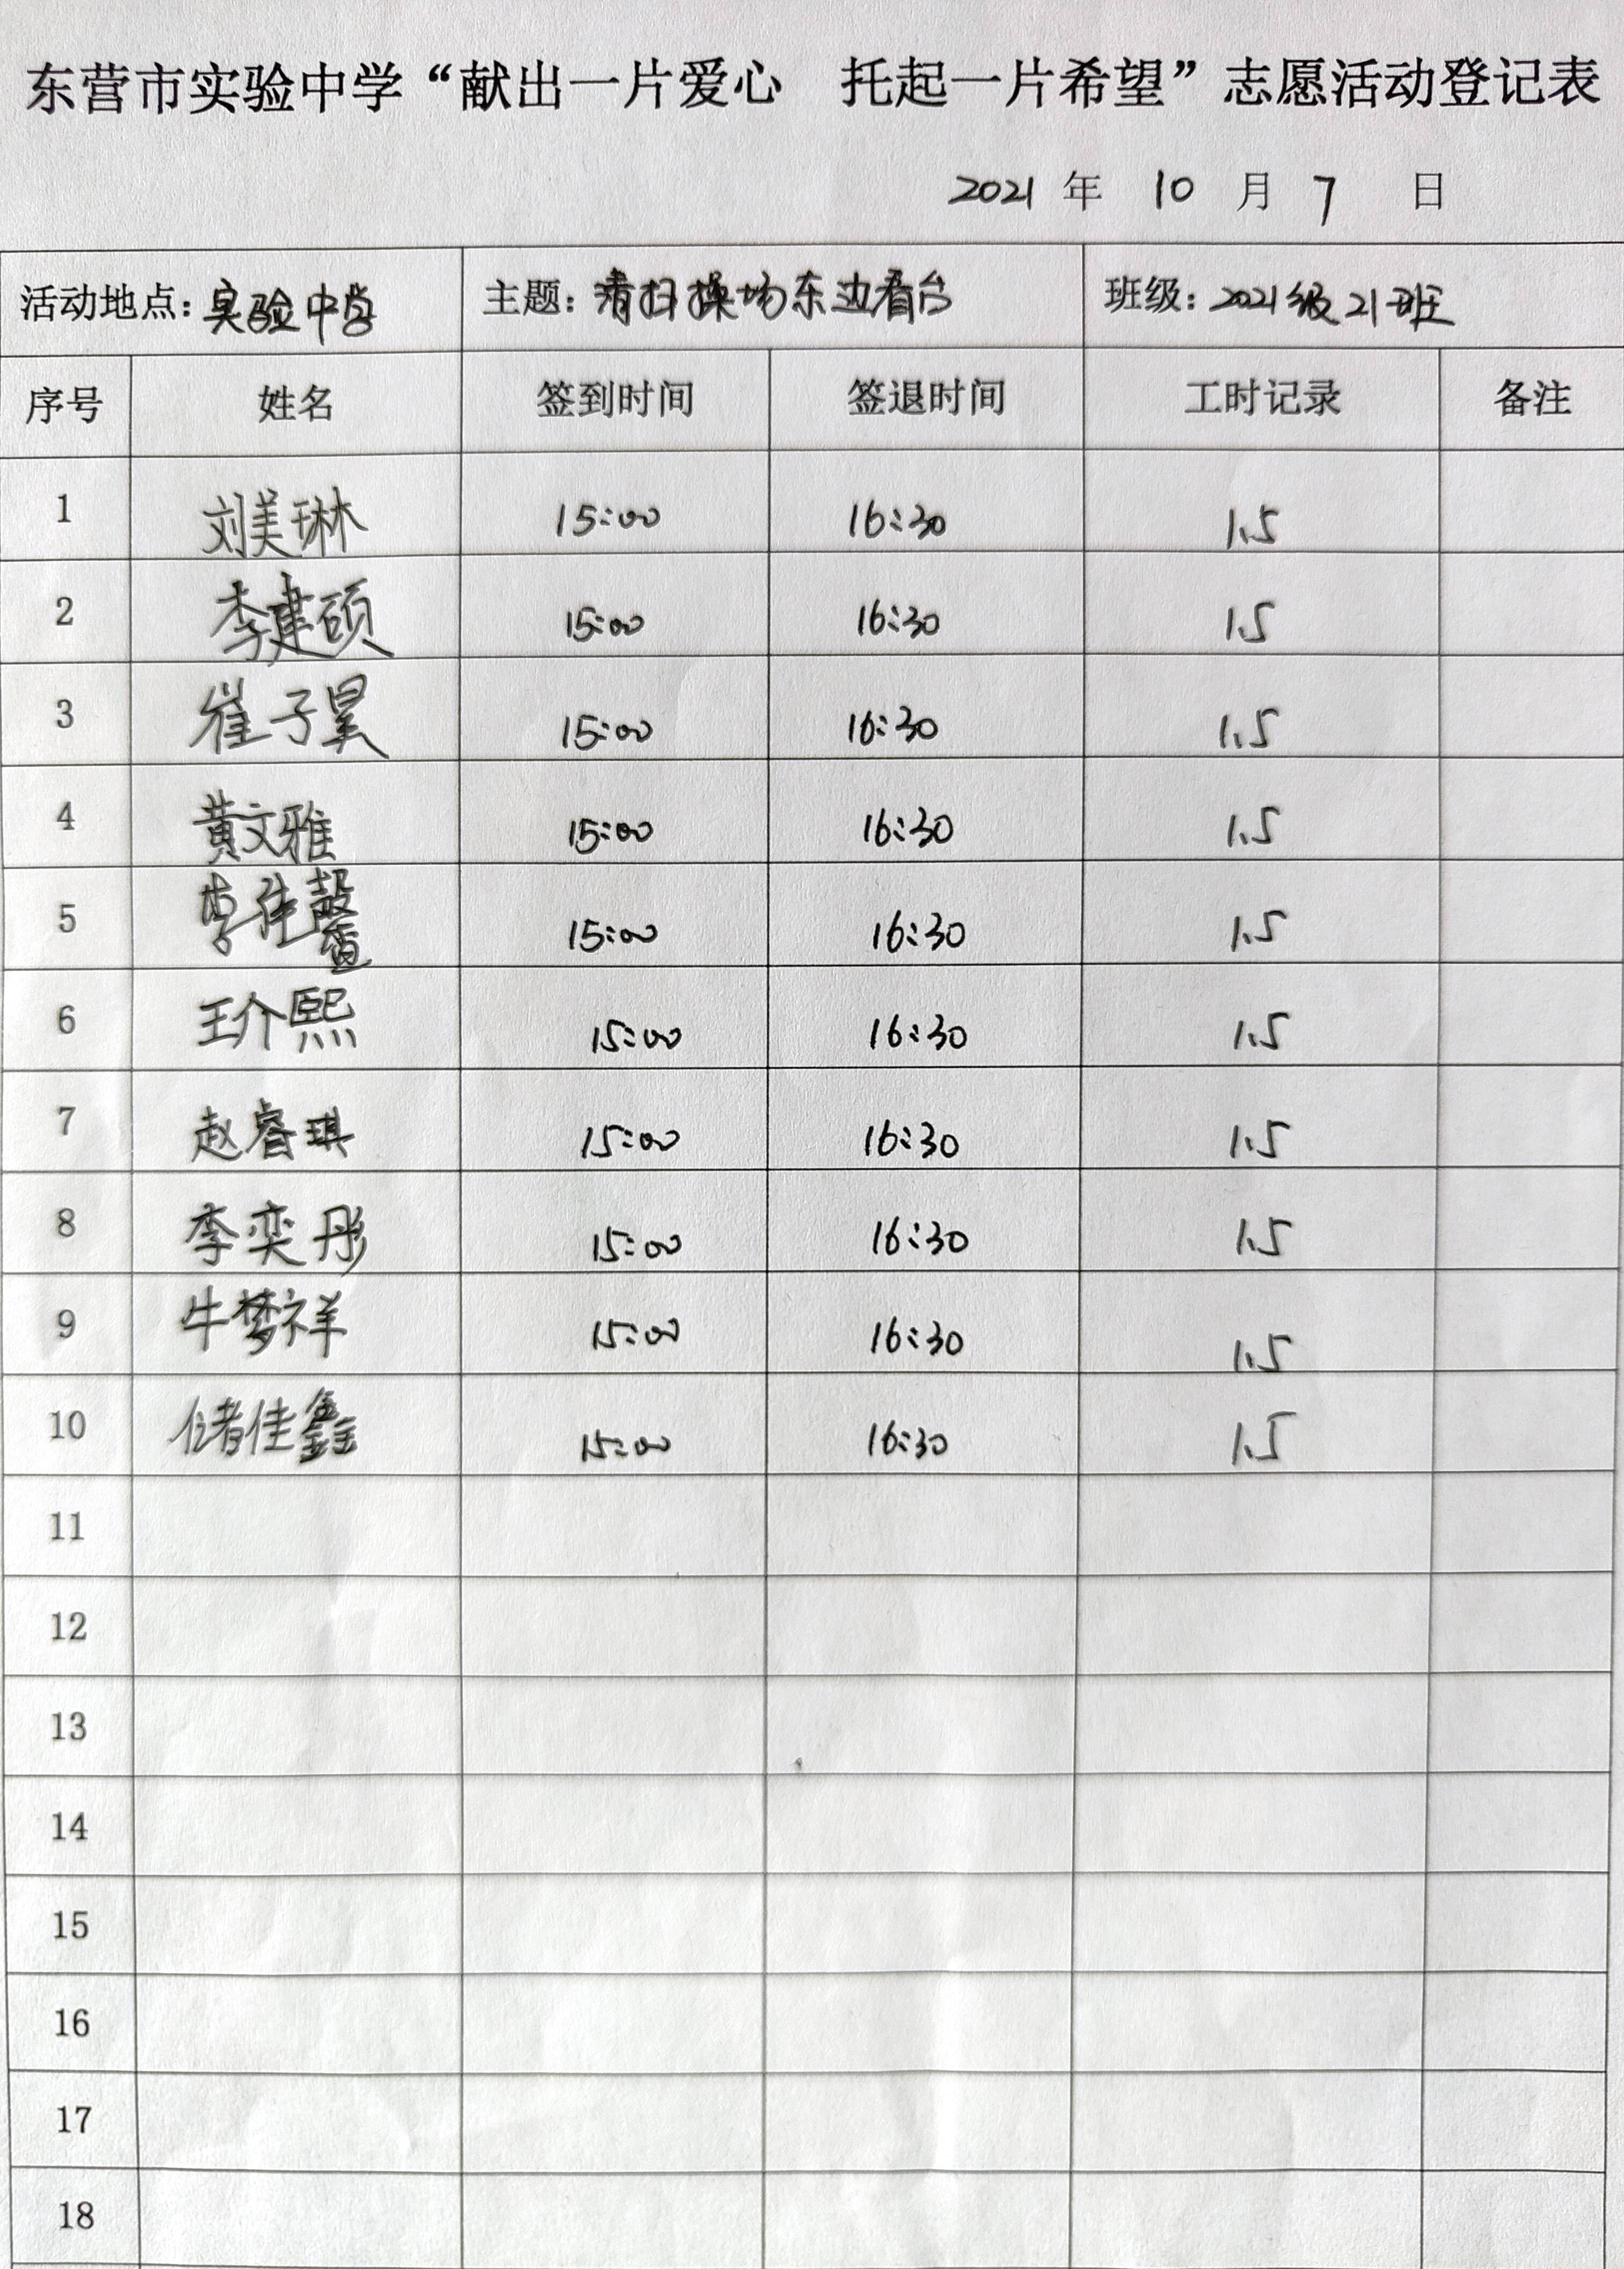 东营市实验中学“献出一片爱心 托起一片希望”志愿活动登记表
2021 年 10 月 7 日
活动地点：实验中学 主题：清扫操场东边看台 班级：2021级21班
序号 姓名 签到时间 签退时间 工时记录 备注
1 刘美琳 15:00 16:30 1.5
2 李建硕 15:00 16:30 1.5
3 崔子昊 15:00 16:30 1.5
4 黄文雅 15:00 16:30 1.5
5 李佳馨 15:00 16:30 1.5
6 王介熙 15:00 16:30 1.5
7 赵睿琪 15:00 16:30 1.5
8 李奕彤 15:00 16:30 1.5
9 牛梦祥 15:00 16:30 1.5
10 储佳鑫 15:00 16:30 1.5
11
12
13
14
15
16
17
18